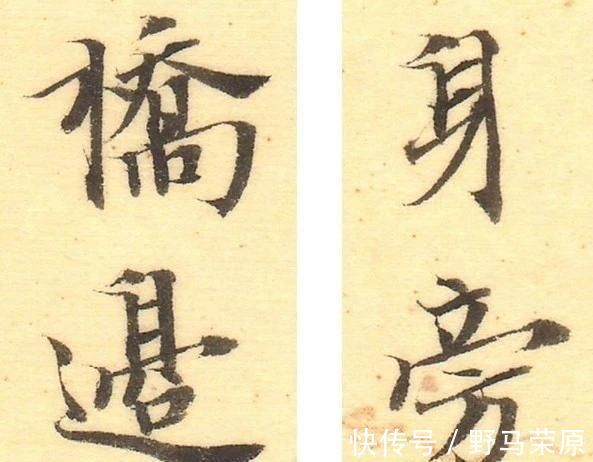 橋邊
身旁
快传号 / 野马荣原